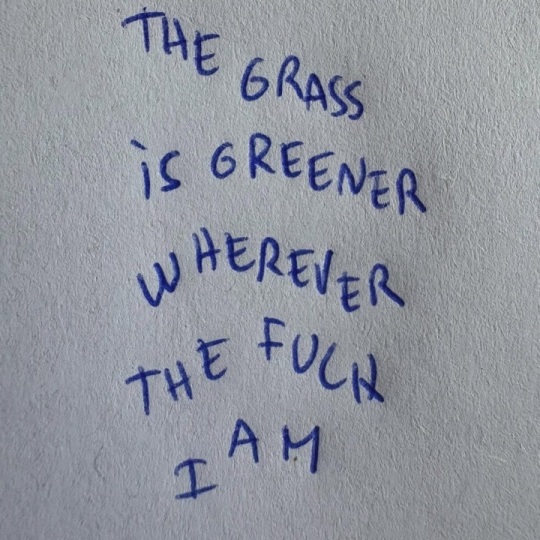 THE GRASS
iS GREENER
WHEREVER
THE FUCK
I AM